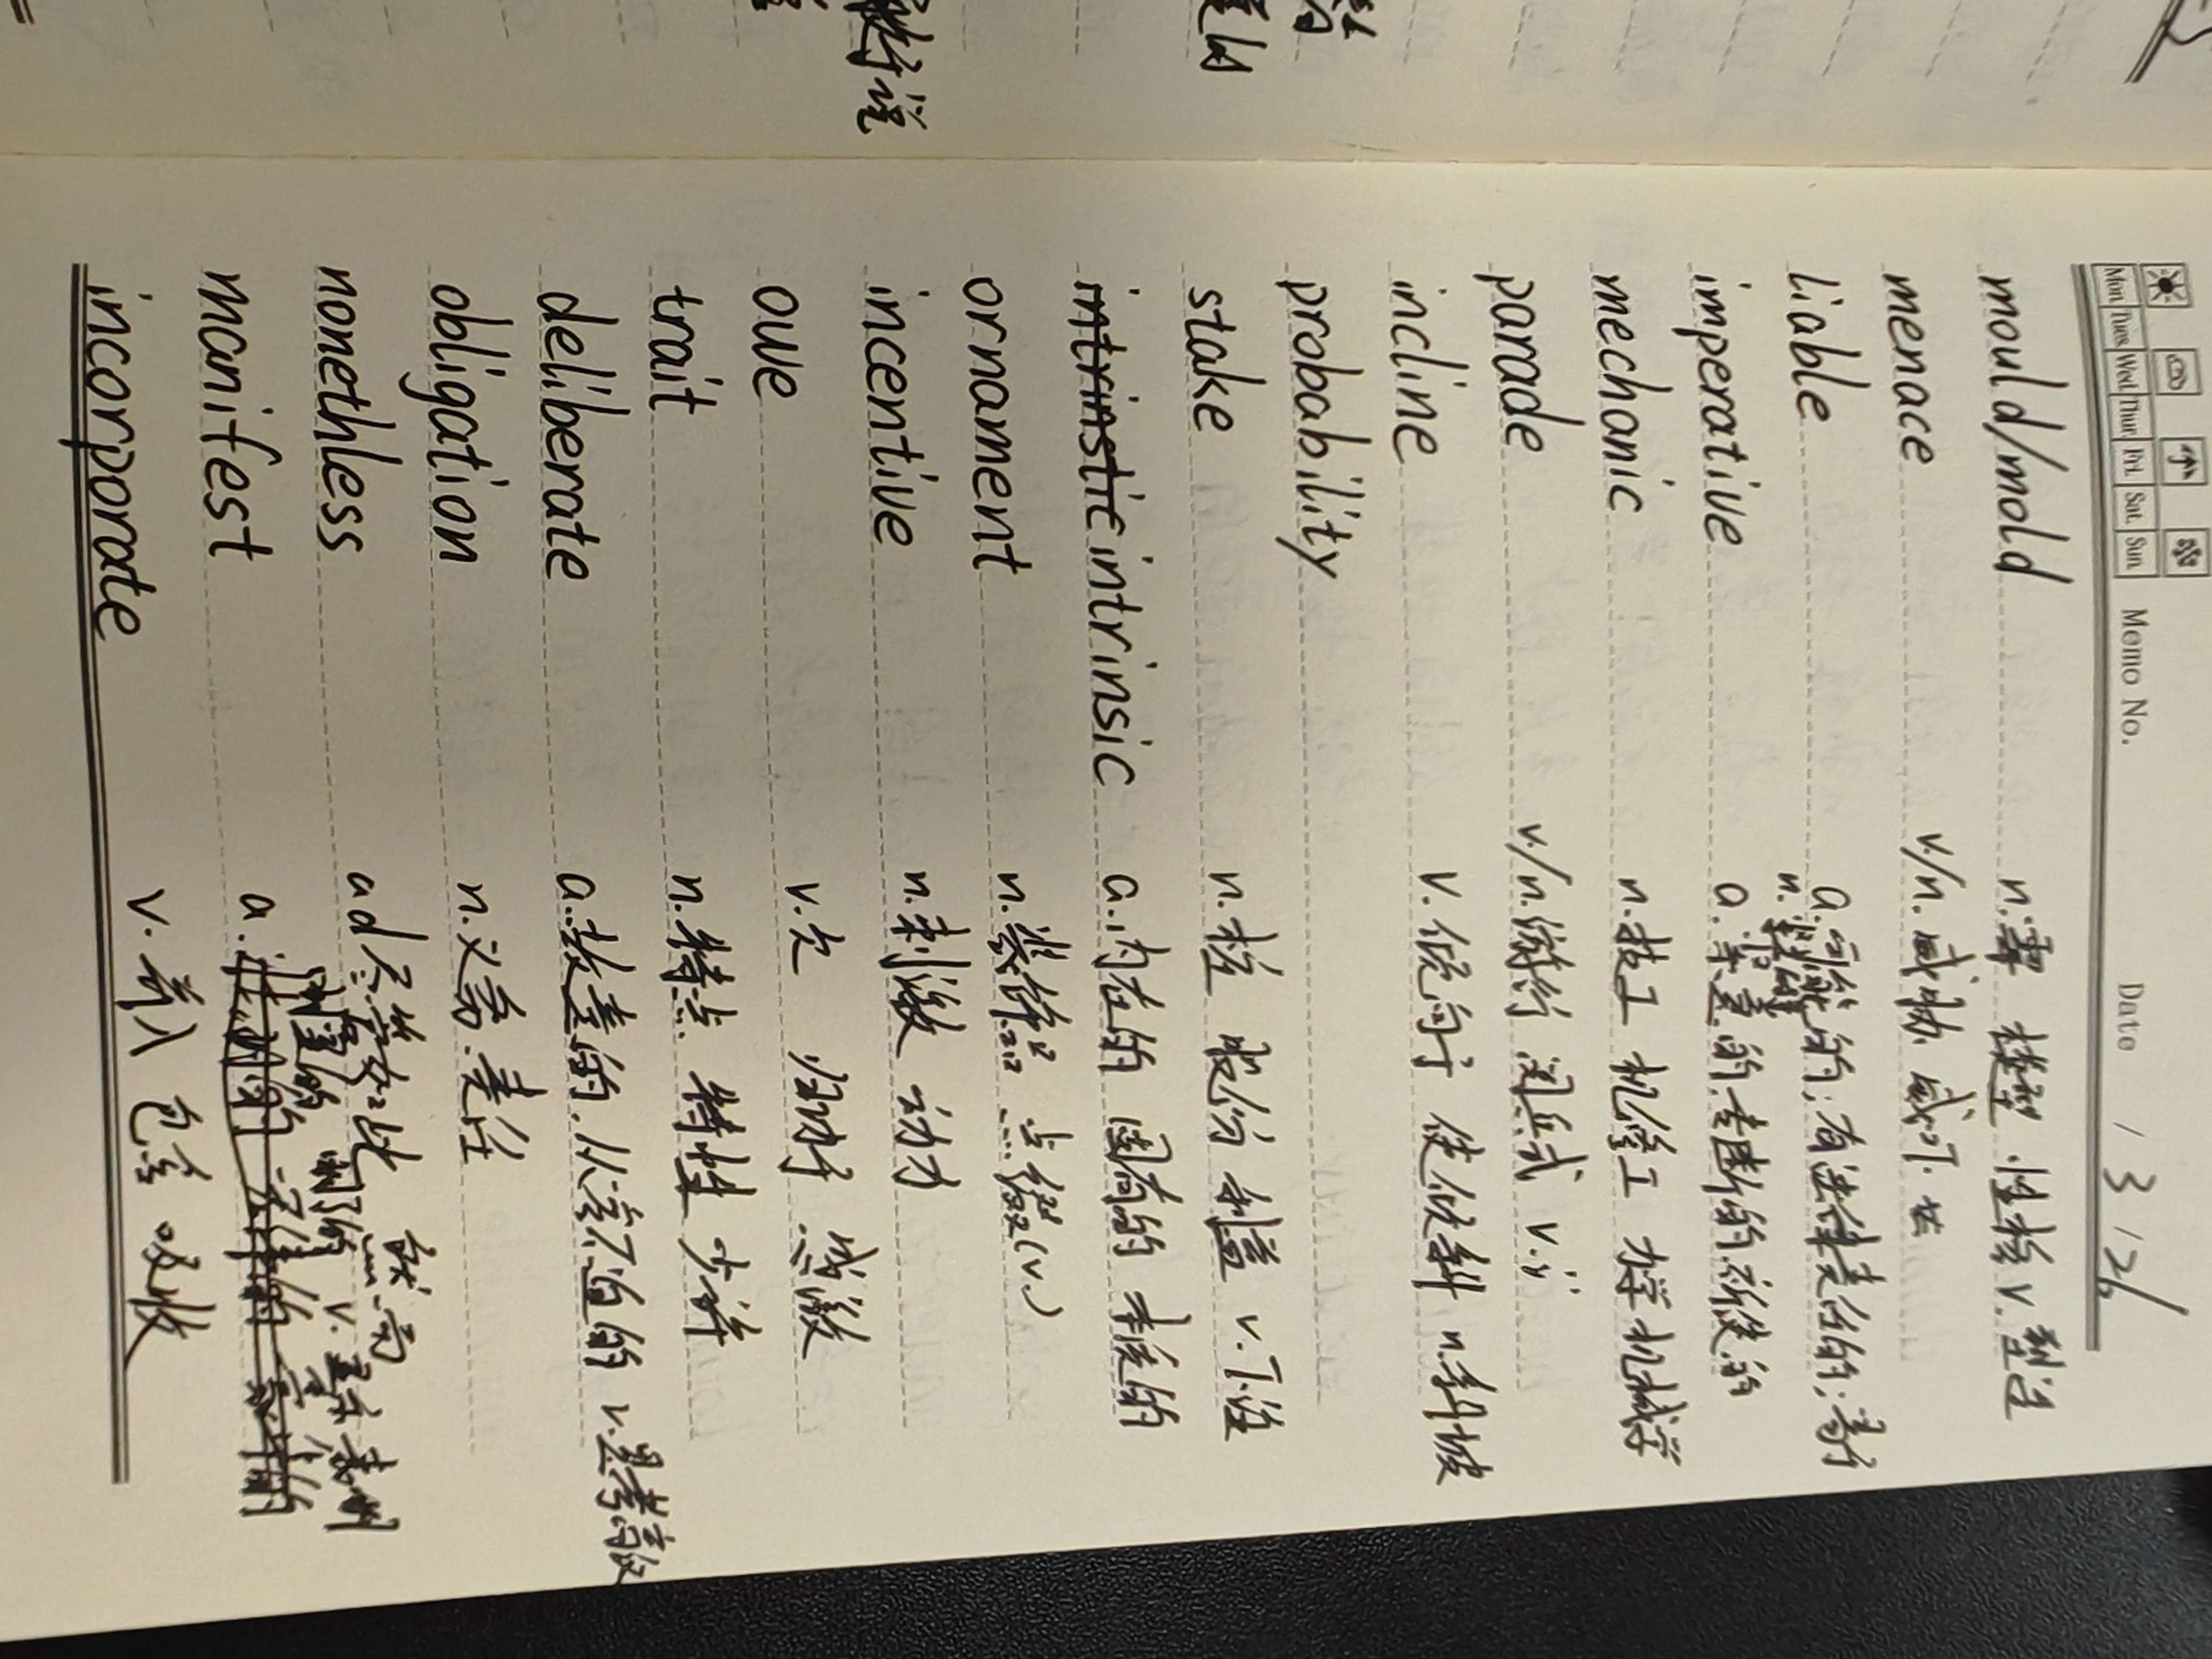 Mon. Tues. Wed. Thur. Fri. Sat. Sun. Memo No. Date / 3 / 26
mould/mold n.霉 模型 性格 v.塑造
menace v./n.威胁 威吓
liable a.可能的;有法律责任的;易于
imperative a.紧要的,专断的,祈使的
mechanic n.技工 机修工 力学 机械学
parade v./n.游行 阅兵式
incline v.倾向于 使倾斜 n.斜坡
probability
stake n.桩 股份 利益 v.下注
intrinsic a.内在的 固有的 本质的
ornament n.装饰品 点缀(v.)
incentive n.刺激 动力
owe v.欠 归功于 感激
trait n.特点 特性 少许
deliberate a.故意的,从容不迫的 v.思考商议
obligation n.义务 责任
nonethless ad尽管如此 然而
manifest a.明显的 明了的 v.显示 表明
incorporate v.并入 包含 吸收